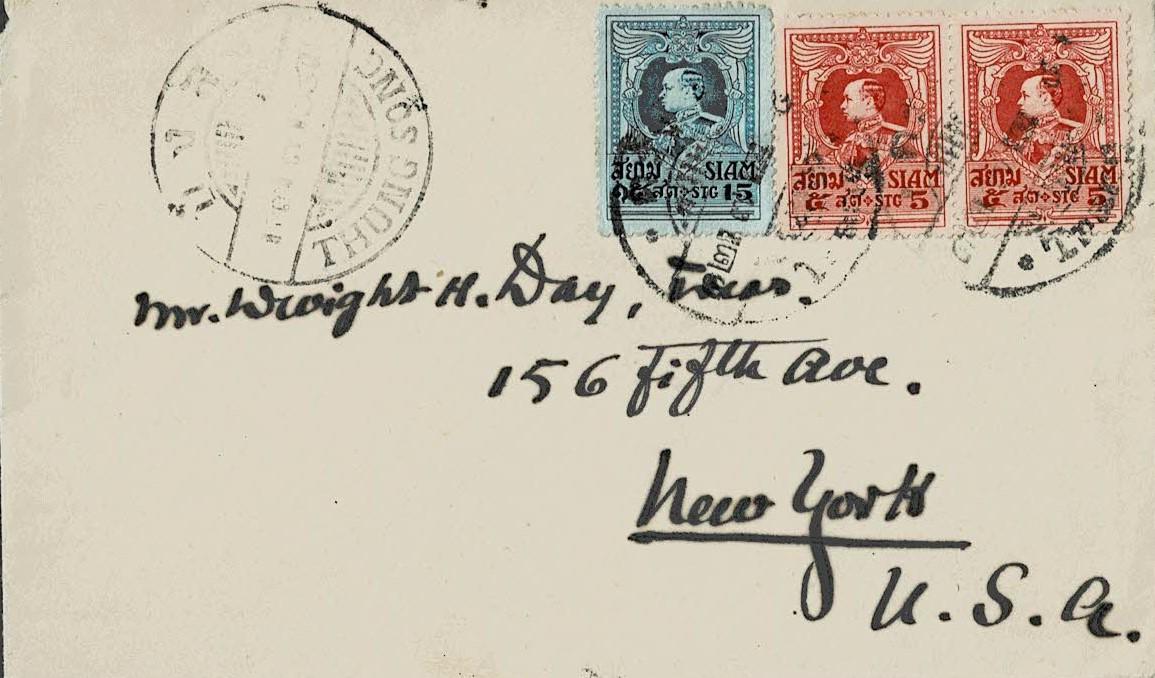 THUNGSONG
สยาม SIAM
๑๕ สต STG 15
สยาม SIAM
๕ สต STG 5
สยาม SIAM
๕ สต STG 5
Mr. Dwight H. Day, Treas.
156 Fifth Ave.
New York
U.S.A.